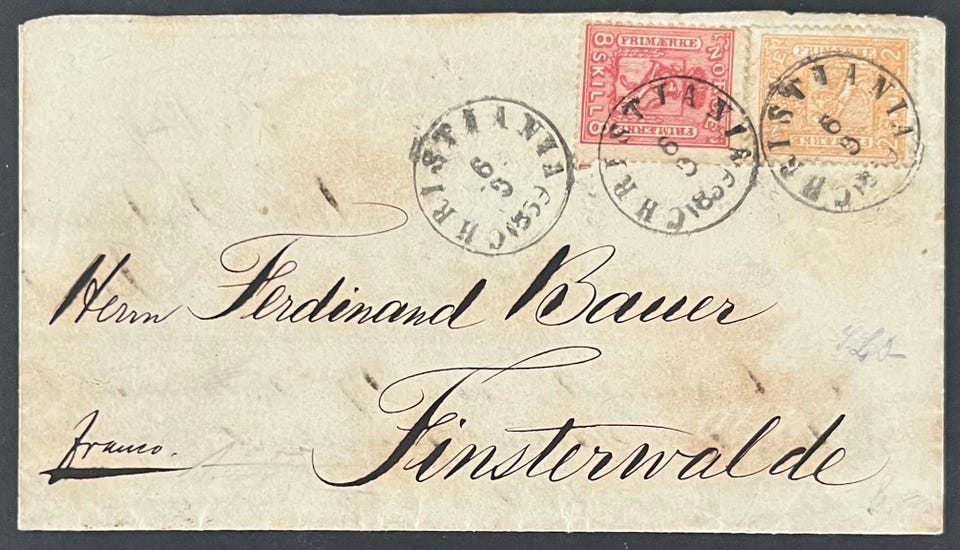 FRIMÆRKE
8 SKILL 8
NORGE
FRIMÆRKE
2
CHRISTIANIA
CHRISTIANIA
CHRISTIANIA
Herrn Ferdinand Bauer
Finsterwalde
franco.